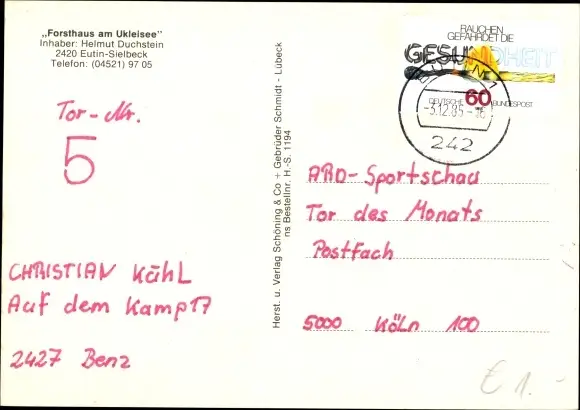 „Forsthaus am Ukleisee"
Inhaber: Helmut Duchstein
2420 Eutin-Sielbeck
Telefon: (04521) 97 05
Tor-Nr.
5
CHRISTIAN Kähl
Auf dem Kamp 17
2427 Benz
Herst. u. Verlag Schöning & Co + Gebrüder Schmidt - Lübeck
ns Bestellnr. H.-S. 1194
RAUCHEN
GEFÄHRDET DIE
GESUNDHEIT
DEUTSCHE 60 BUNDESPOST
-5.12.85-16
242
ARD-Sportschau
Tor des Monats
Postfach
5000 KÖLN 100
€ 1.-